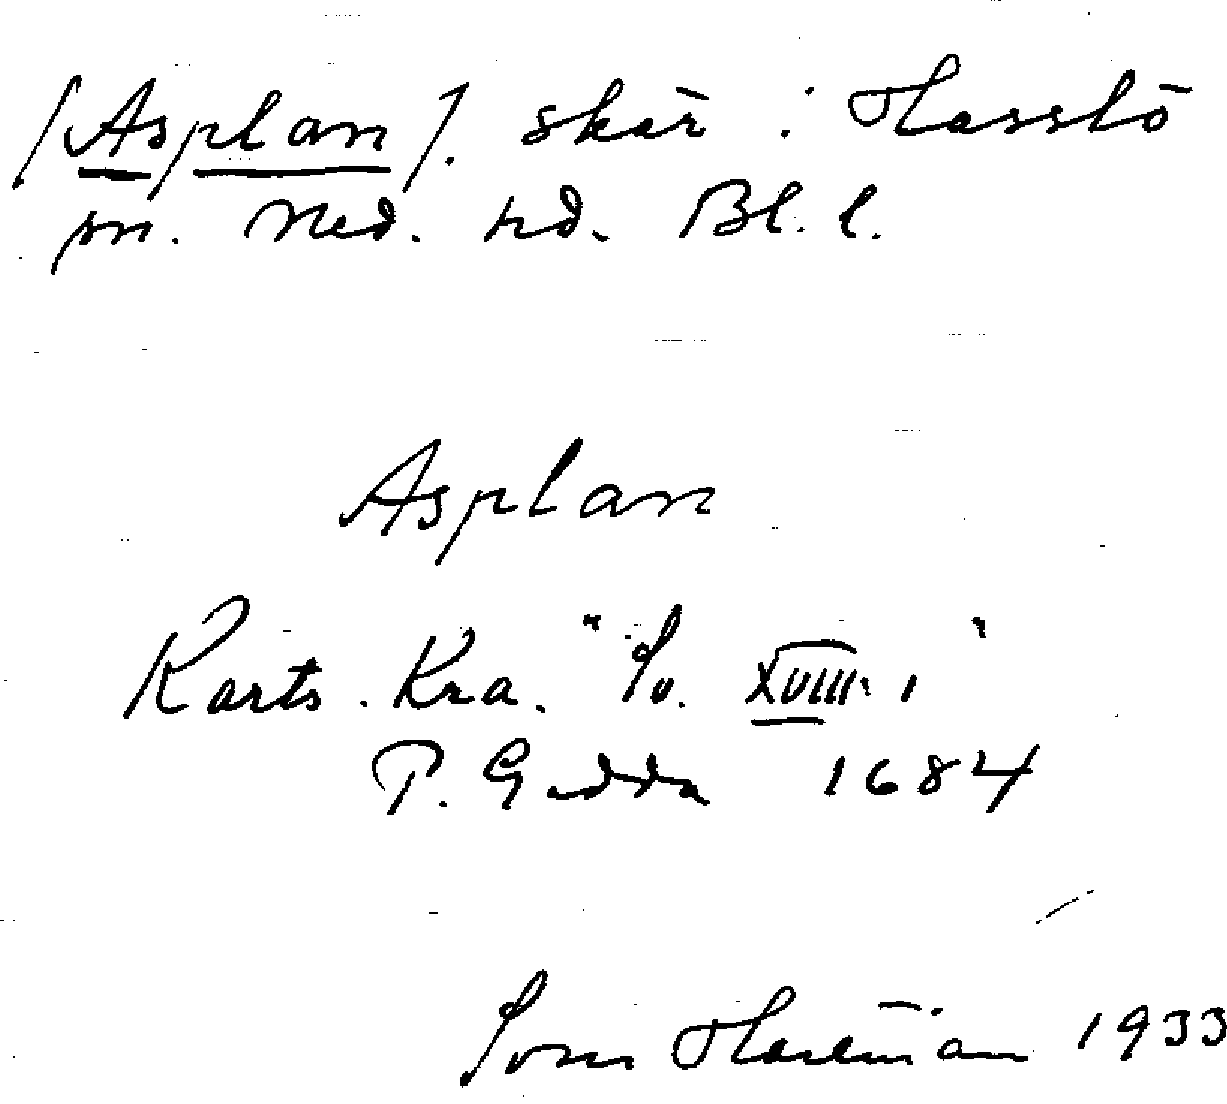 [Asplan]. skär i Hasslö
sn. Med. hd. Bl. l.
Asplan
Kartv. Kra. "Sv. XVIII. 1"
P. Gedda 1684
Sven 1933